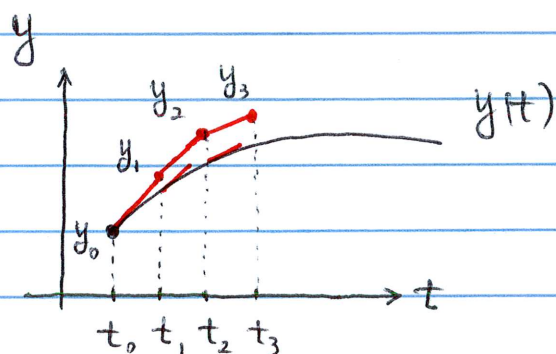 y
y₂ y₃ y(t)
y₁
y₀
t
t₀ t₁ t₂ t₃